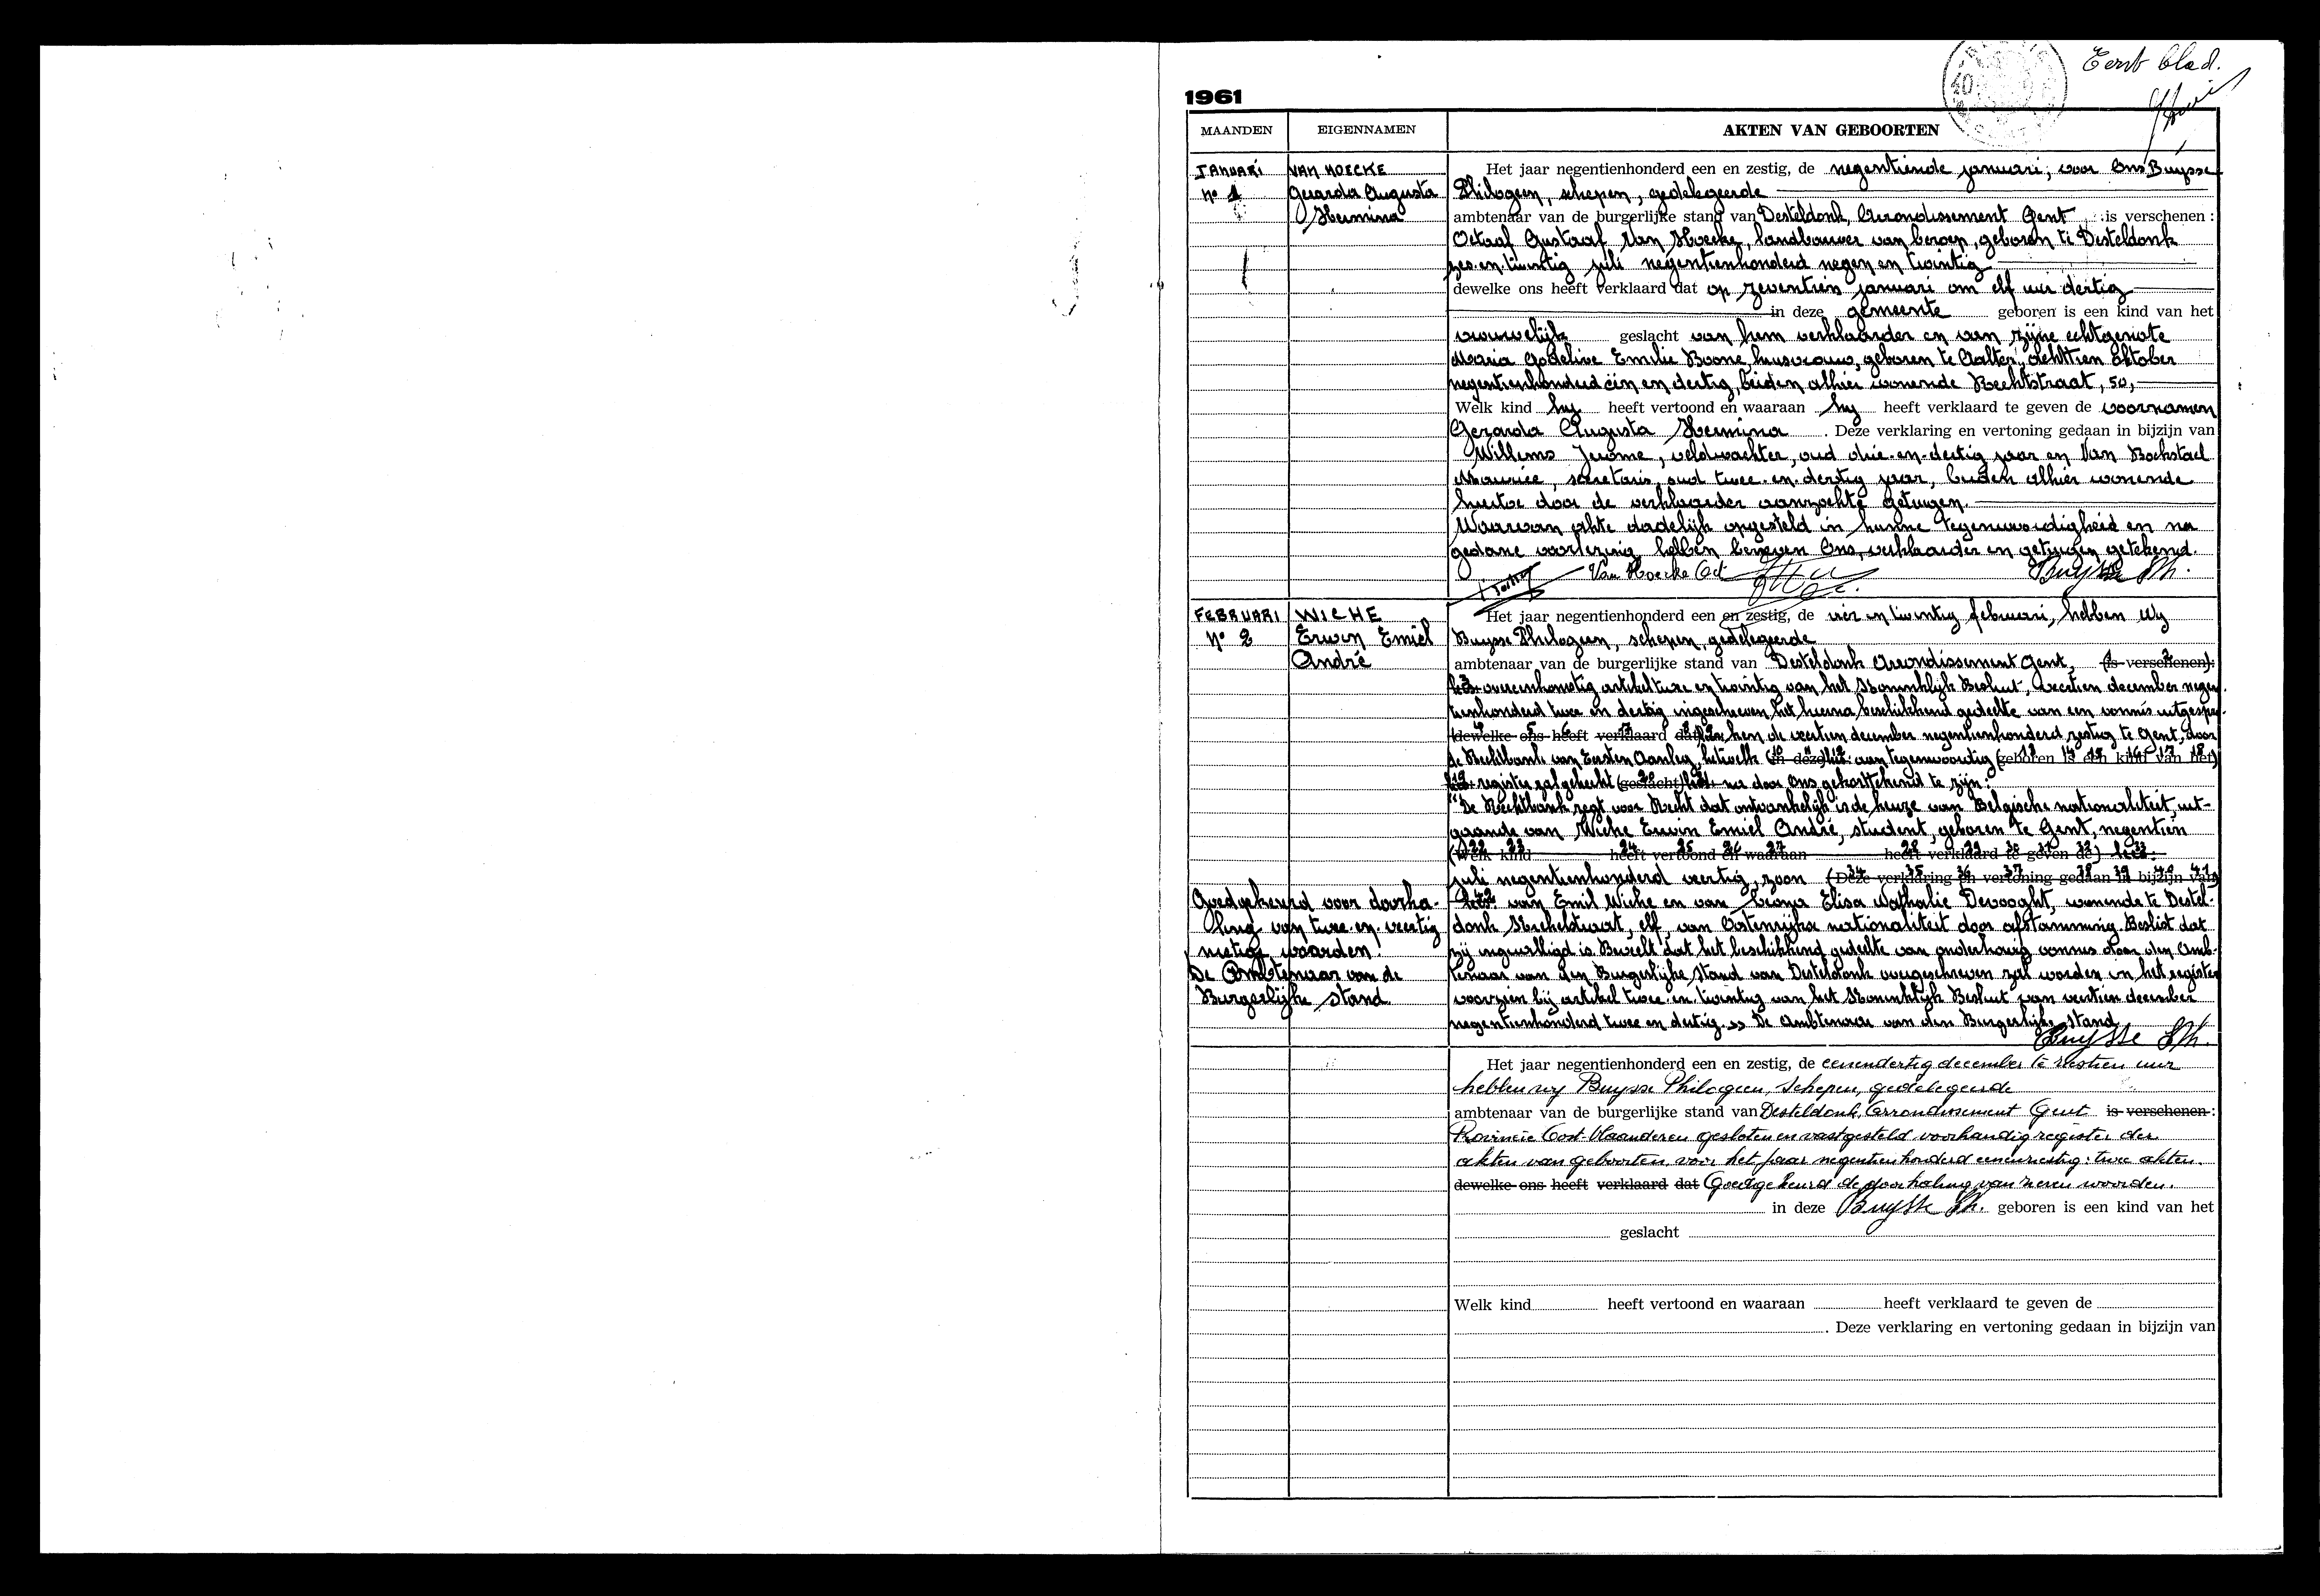 Eerste blad.
1961
MAANDEN EIGENNAMEN AKTEN VAN GEBOORTEN
JANUARI VAN HOECKE Het jaar negentienhonderd een en zestig, de negentiende januari, voor Ons Buysse
N° 1 Gerarda Augusta Philogeen, schepen, gedelegeerde
Hermina ambtenaar van de burgerlijke stand van Desteldonk, Arrondissement Gent, is verschenen :
Octaaf Gustaaf Van Hoecke, landbouwer van beroep, geboren te Desteldonk
zes en twintig juli negentienhonderd negen en twintig
dewelke ons heeft verklaard dat op zeventien januari om elf uur dertig
in deze gemeente geboren is een kind van het
vrouwelijk geslacht van hem verklaarder en van zijne echtgenote
Maria Godelive Emilie Boone, huisvrouw, geboren te Aalter, achttien oktober
negentienhonderd één en dertig, beiden alhier wonende Rechtstraat, 50,
Welk kind hij heeft vertoond en waaraan hij heeft verklaard te geven de voornamen
Gerarda Augusta Hermina . Deze verklaring en vertoning gedaan in bijzijn van
Willems Jerome, veldwachter, oud drie-en-dertig jaar en Van Bockstael
Maurice, secretaris, oud twee-en-dertig jaar, beiden alhier wonende
hiertoe door de verklaarder aanzochte getuigen.
Waarvan akte dadelijk opgesteld in hunne tegenwoordigheid en na
gedane voorlezing hebben benevens Ons, verklaarder en getuigen getekend.
Van Hoecke Oct Buysse Ph.
FEBRUARI WICHE Het jaar negentienhonderd een en zestig, de vier en twintig februari, hebben Wij
N° 2 Erwin Emiel Buysse Philogeen, schepen, gedelegeerde
André ambtenaar van de burgerlijke stand van Desteldonk Arrondissement Gent, (is verschenen):
overeenkomstig artikel twee en twintig van het Koninklijk Besluit, veertien december negen-
tienhonderd twee en dertig ingeschreven het hierna beschikkend gedeelte van een vonnis uitgespro-
(dewelke ons heeft verklaard dat) ken de veertien december negentienhonderd zestig te Gent, door
de Rechtbank van Eersten Aanleg, hetwelk (in deze) aan tegenwoordig (geboren is een kind van het)
register zal gehecht (geslacht) na door Ons gekorttekend te zijn:
"De Rechtbank zegt voor Recht dat ontvankelijk is de keuze van Belgische nationaliteit, uit-
gaande van Wiche Erwin Emiel André, student, geboren te Gent, negentien
(Welk kind heeft vertoond en waaraan heeft verklaard te geven de) lees:
juli negentienhonderd veertig, zoon (Deze verklaring en vertoning gedaan in bijzijn van)
Goedgekeurd voor doorha- van Emil Wiche en van Elisa Nathalie Devooght, wonende te Destel-
ling van twee en veertig donk elf, van Oostenrijkse nationaliteit door afstamming. Beslist dat
nietige woorden. zij ingewilligd is. Beveelt dat het beschikkend gedeelte van onderhavig vonnis door den Amb-
De Ambtenaar van de tenaar van den Burgerlijke Stand van Desteldonk overgeschreven zal worden in het register
Burgerlijke stand voorzien bij artikel twee en twintig van het Koninklijk Besluit van veertien december
negentienhonderd twee en dertig.» De Ambtenaar van den Burgerlijke stand
Buysse Ph.
Het jaar negentienhonderd een en zestig, de eenendertig december te zestien uur
hebben wij Buysse Philogeen, schepen, gedelegeerde
ambtenaar van de burgerlijke stand van Desteldonk, Arrondissement Gent is verschenen :
Provincie Oost-Vlaanderen gesloten en vastgesteld voorhandig register der
akten van geboorten voor het jaar negentienhonderd eenenzestig: twee akten.
dewelke ons heeft verklaard dat Goedgekeurd de doorhaling van zeven woorden.
in deze Buysse Ph. geboren is een kind van het
geslacht
Welk kind heeft vertoond en waaraan heeft verklaard te geven de
. Deze verklaring en vertoning gedaan in bijzijn van